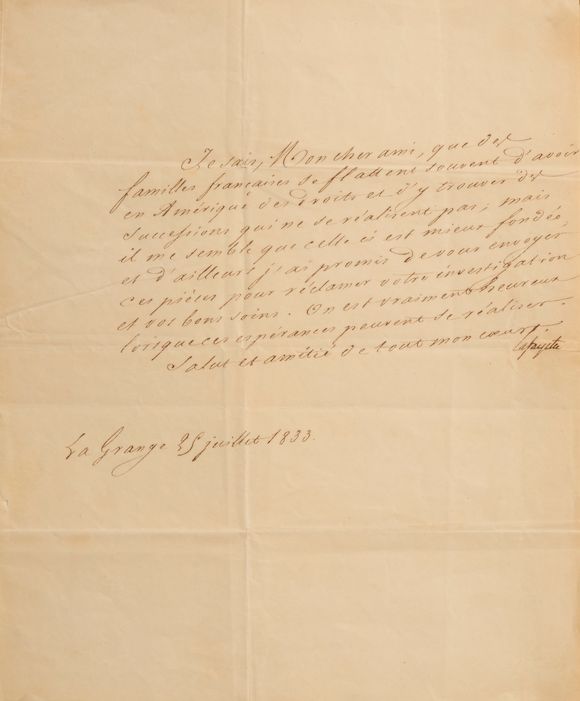 Je sais, Mon cher ami, que des
familles françaises se flattent souvent d'avoir
en Amérique des droits et d'y trouver des
successions qui ne se réalisent pas; mais
il me semble que celle ci est mieux fondée,
et d'ailleurs j'ai promis de vous envoyer
ces pièces pour réclamer votre investigation
et vos bons soins. On est vraiment heureux
lorsque ces espérances peuvent se réaliser.
Salut et amitié de tout mon cœur.
Lafayette
La Grange 25 juillet 1833.